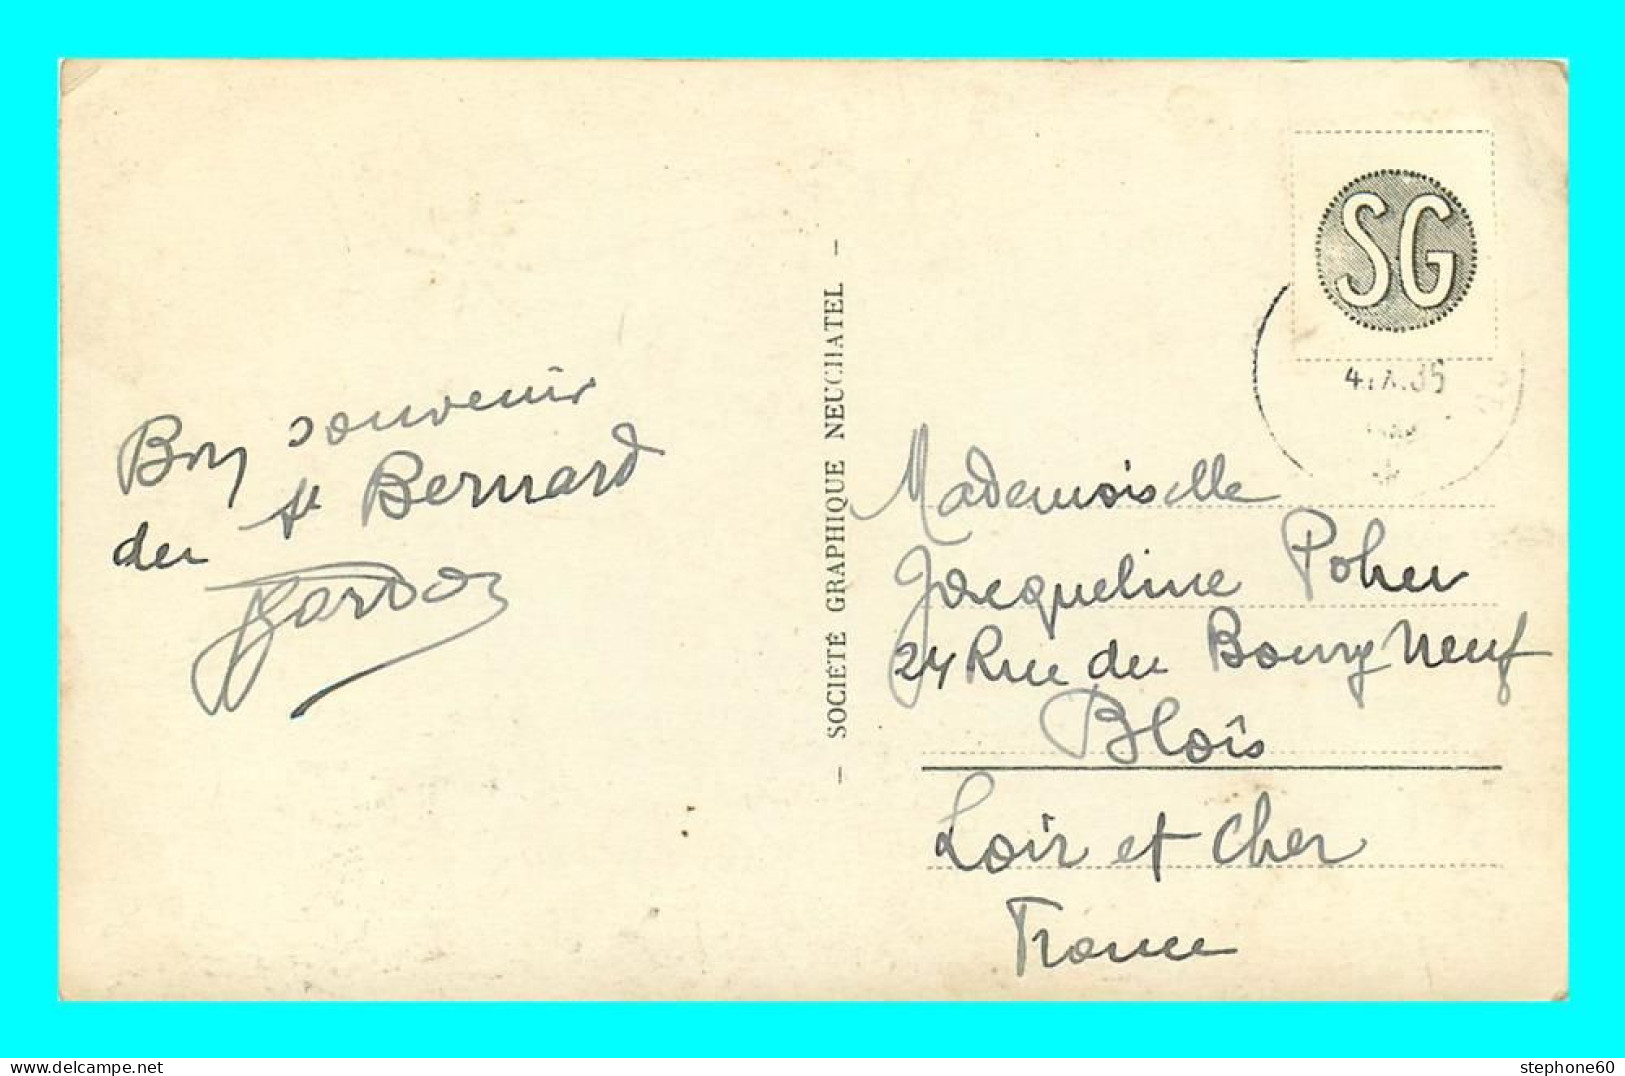 Bon souvenir
du St Bernard
SOCIÉTÉ GRAPHIQUE NEUCHATEL
SG
Mademoiselle
Jacqueline Poher
24 Rue du Bourg Neuf
Blois
Loir et Cher
France
www.delcampe.net
stephone60